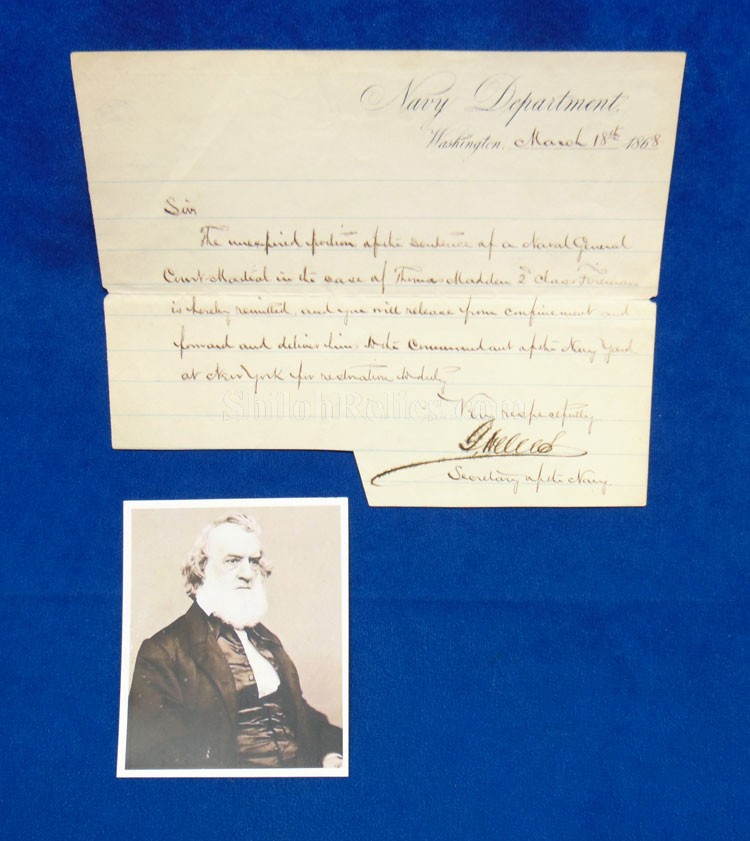 Navy Department,
Washington, March 18th 1868
Sir
The unexpired portion of the sentence of a Naval General
Court-Martial in the case of Thomas Madden 2d Class Fireman
is hereby remitted, and you will release from confinement and
forward and deliver him to the Commandant of the Navy Yard
at New York for restoration to duty
ShilohRelics.com
Very respectfully
G Welles
Secretary of the Navy